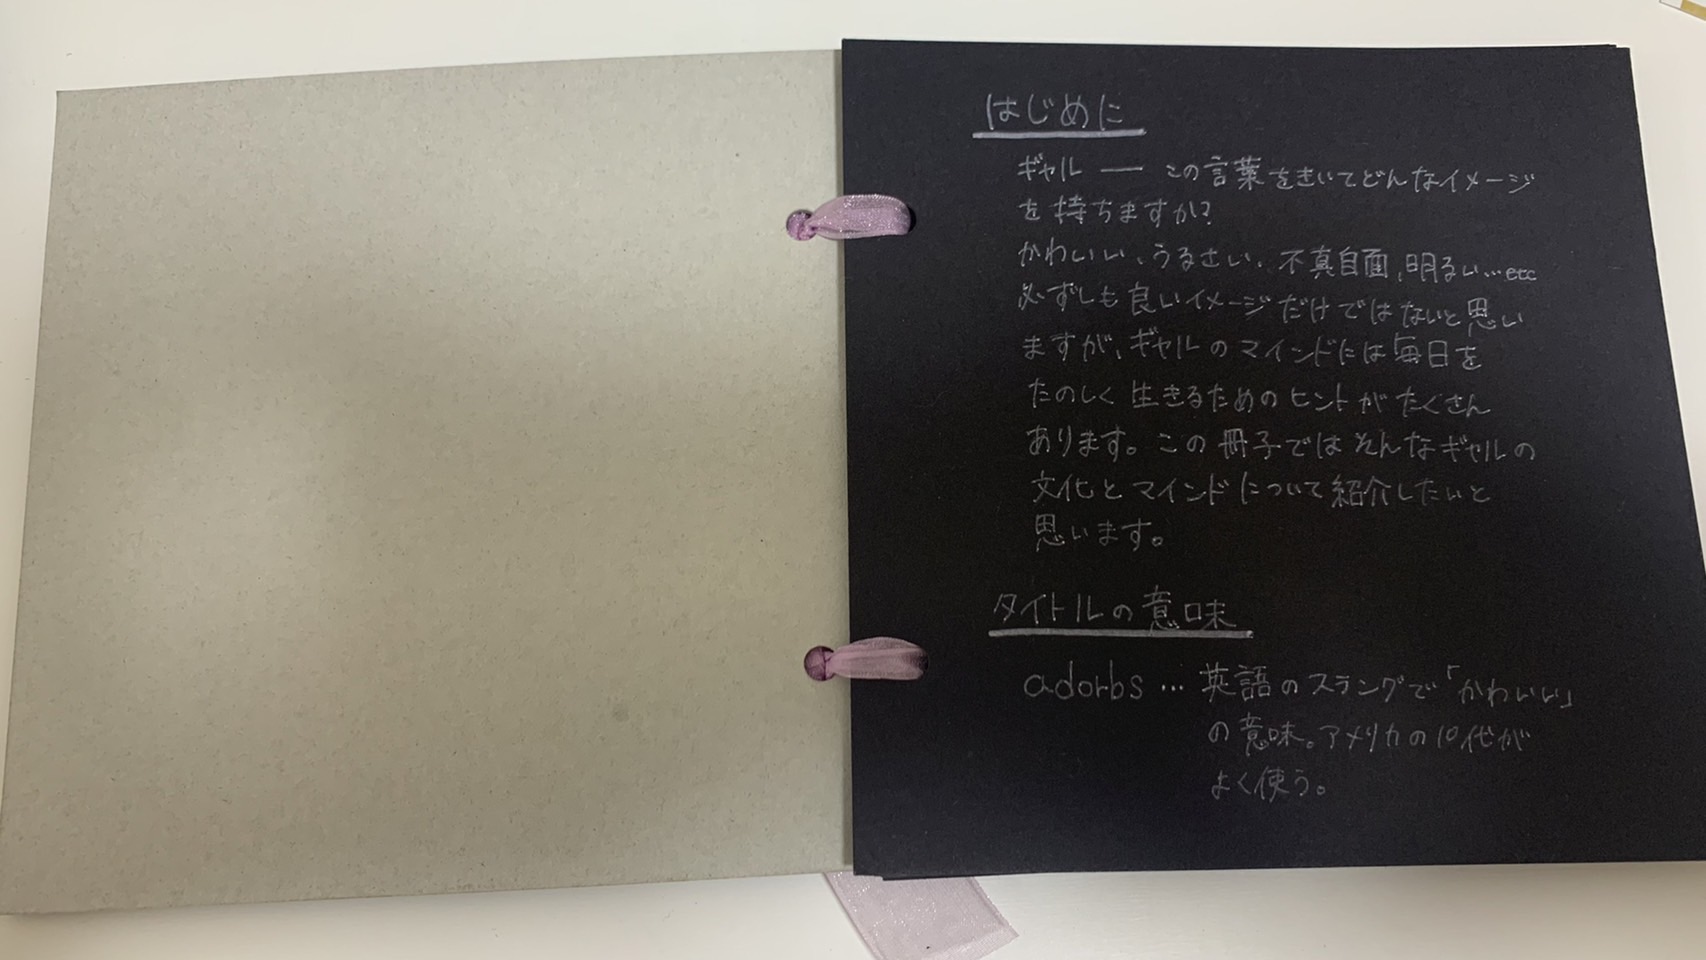 はじめに
ギャル ― この言葉をきいてどんなイメージ
を持ちますか?
かわいい、うるさい、不真自面、明るい…etc
必ずしも良いイメージだけではないと思い
ますが、ギャルのマインドには毎日を
たのしく生きるためのヒントがたくさん
あります。この冊子ではそんなギャルの
文化とマインドについて紹介したいと
思います。
タイトルの意味
adorbs … 英語のスラングで「かわいい」
の意味。アメリカの10代が
よく使う。